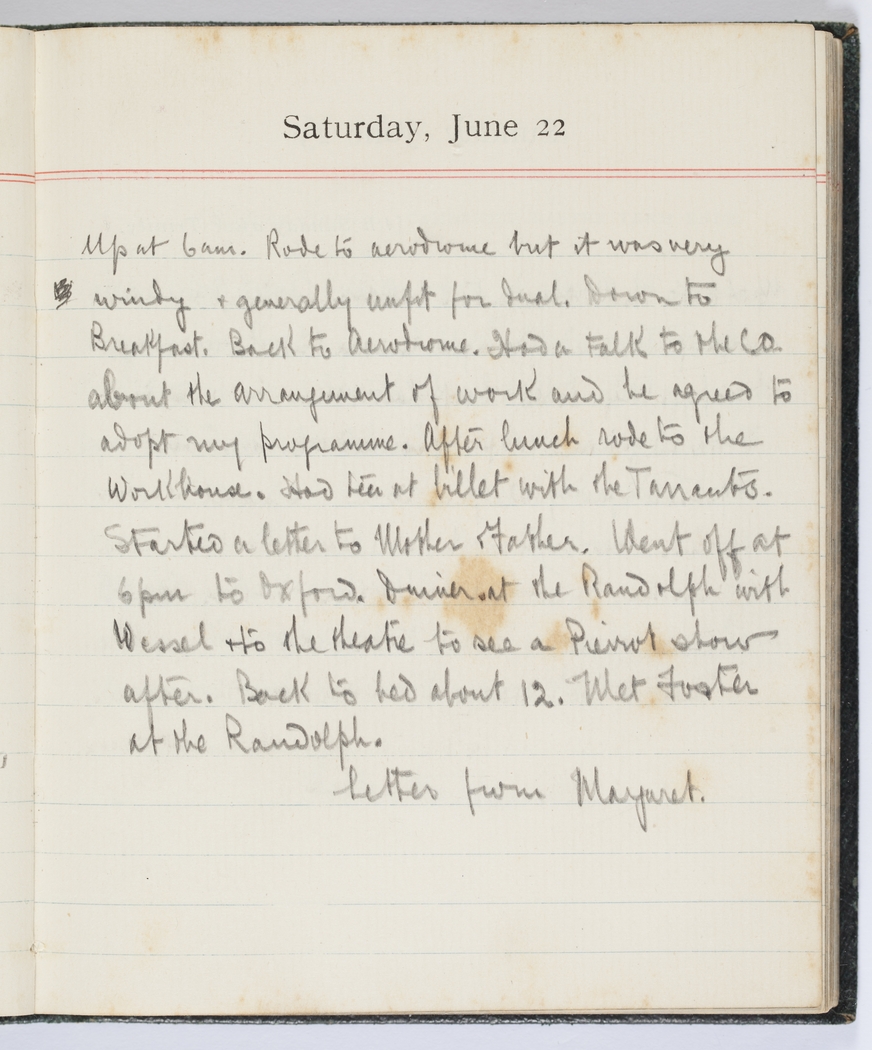 Saturday, June 22
Up at 6am. Rode to aerodrome but it was very
windy + generally unfit for dual. Down to
Breakfast. Back to Aerodrome. Had a talk to the C.O.
about the arrangement of work and he agreed to
adopt my programme. After lunch rode to the
Workhouse. Had tea at billet with the Tarrants.
Started a letter to Mother & Father. Went off at
6pm to Oxford. Dinner at the Randolph with
Wessel + to the theatre to see a Pierrot show
after. Back to bed about 12. Met Foster
at the Randolph.
Letter from Margaret.